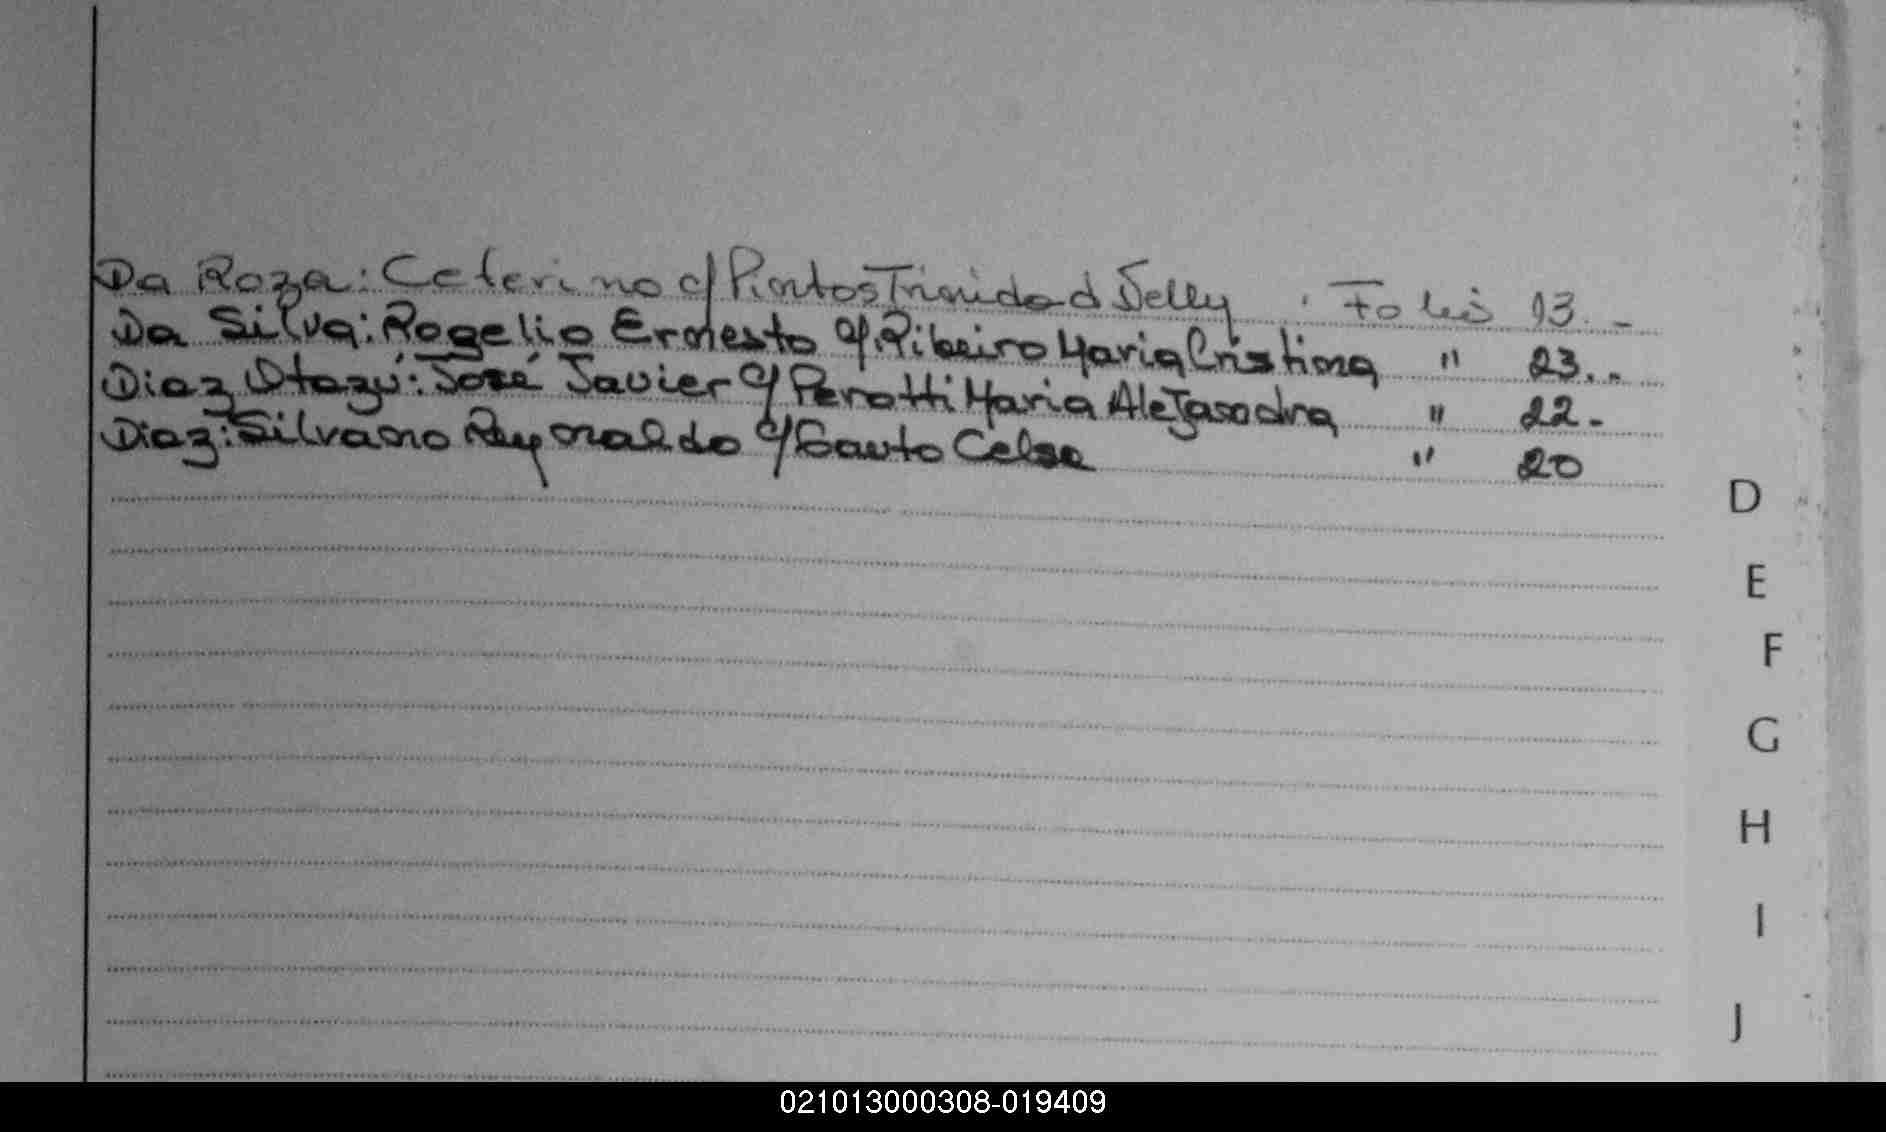 Da Roza: Ceferino c/ Pintos Trinidad Nelly . Folio 13. -
Da Silva: Rogelio Ernesto c/. Ribeiro Maria Cristina " 23. .
Diaz Otazú: José Javier c/ Perotti Maria Alejasodra " 22. -
Diaz: Silvano Reynaldo c/ Gauto Celsa " 20
D
E
F
G
H
I
J
021013000308-019409